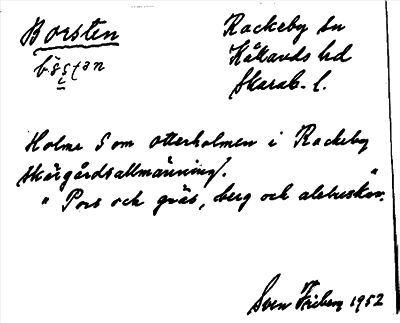 Borsten
Rackeby sn
Kållands hd
Skarab. l.
Holme S om Otterholmen i Rackeby
skärgårdsallmänning.
" Pors och gräs, berg och albuskar."
Sven Friberg 1952